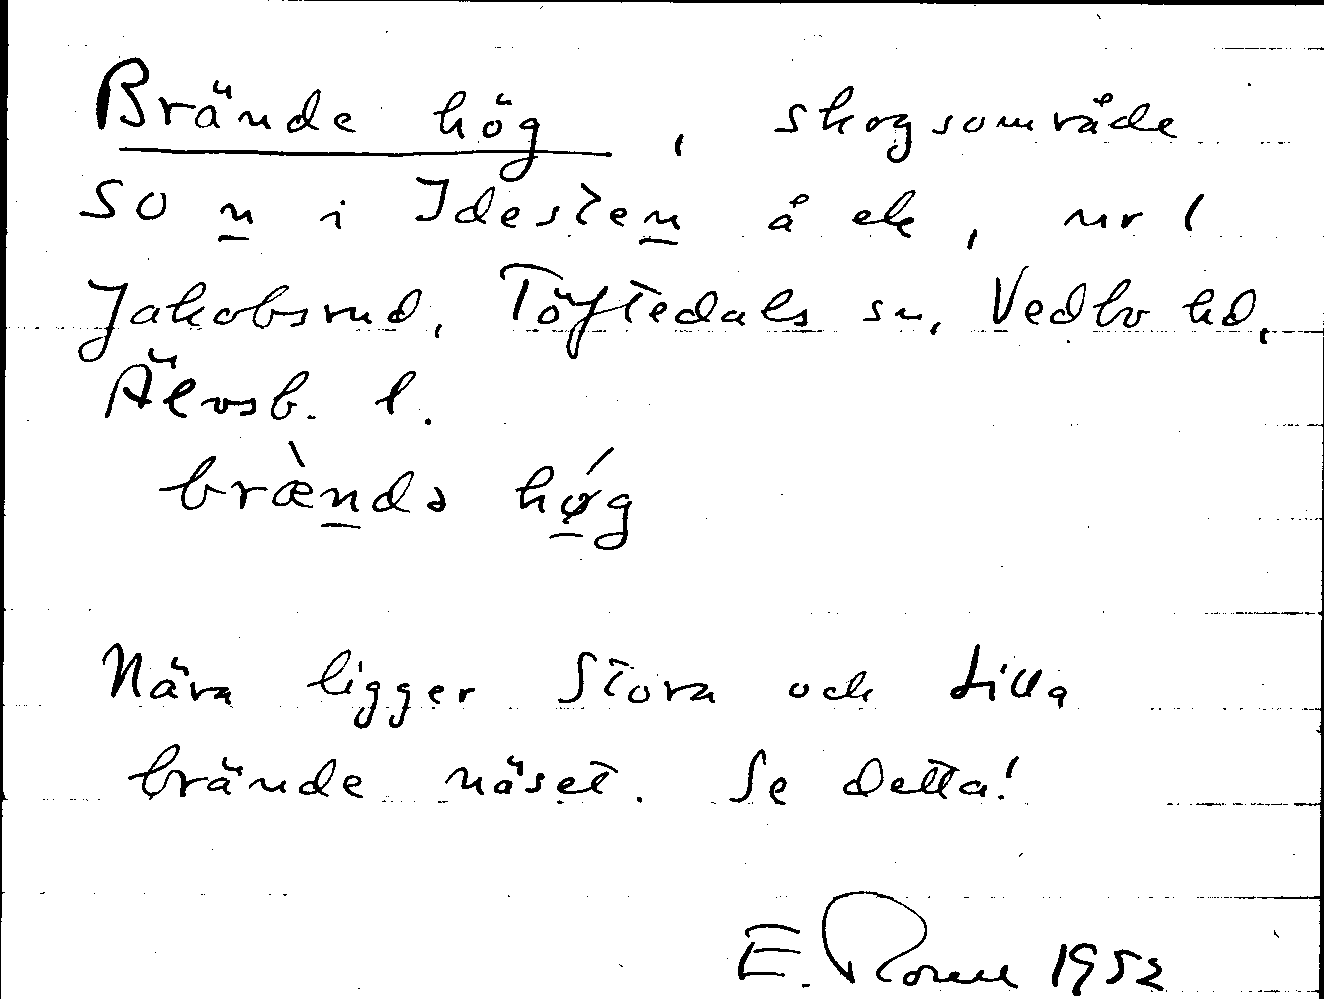 Brände hög, skogsområde
SO n i Idesten å ek, nr 1
Jakobsrud, Töftedals sn, Vedbo hd,
Älvsb. l.
bræ̀ndə hǿg
Nära ligger Stora och Lilla
brände näset. Se detta!
E. 1952